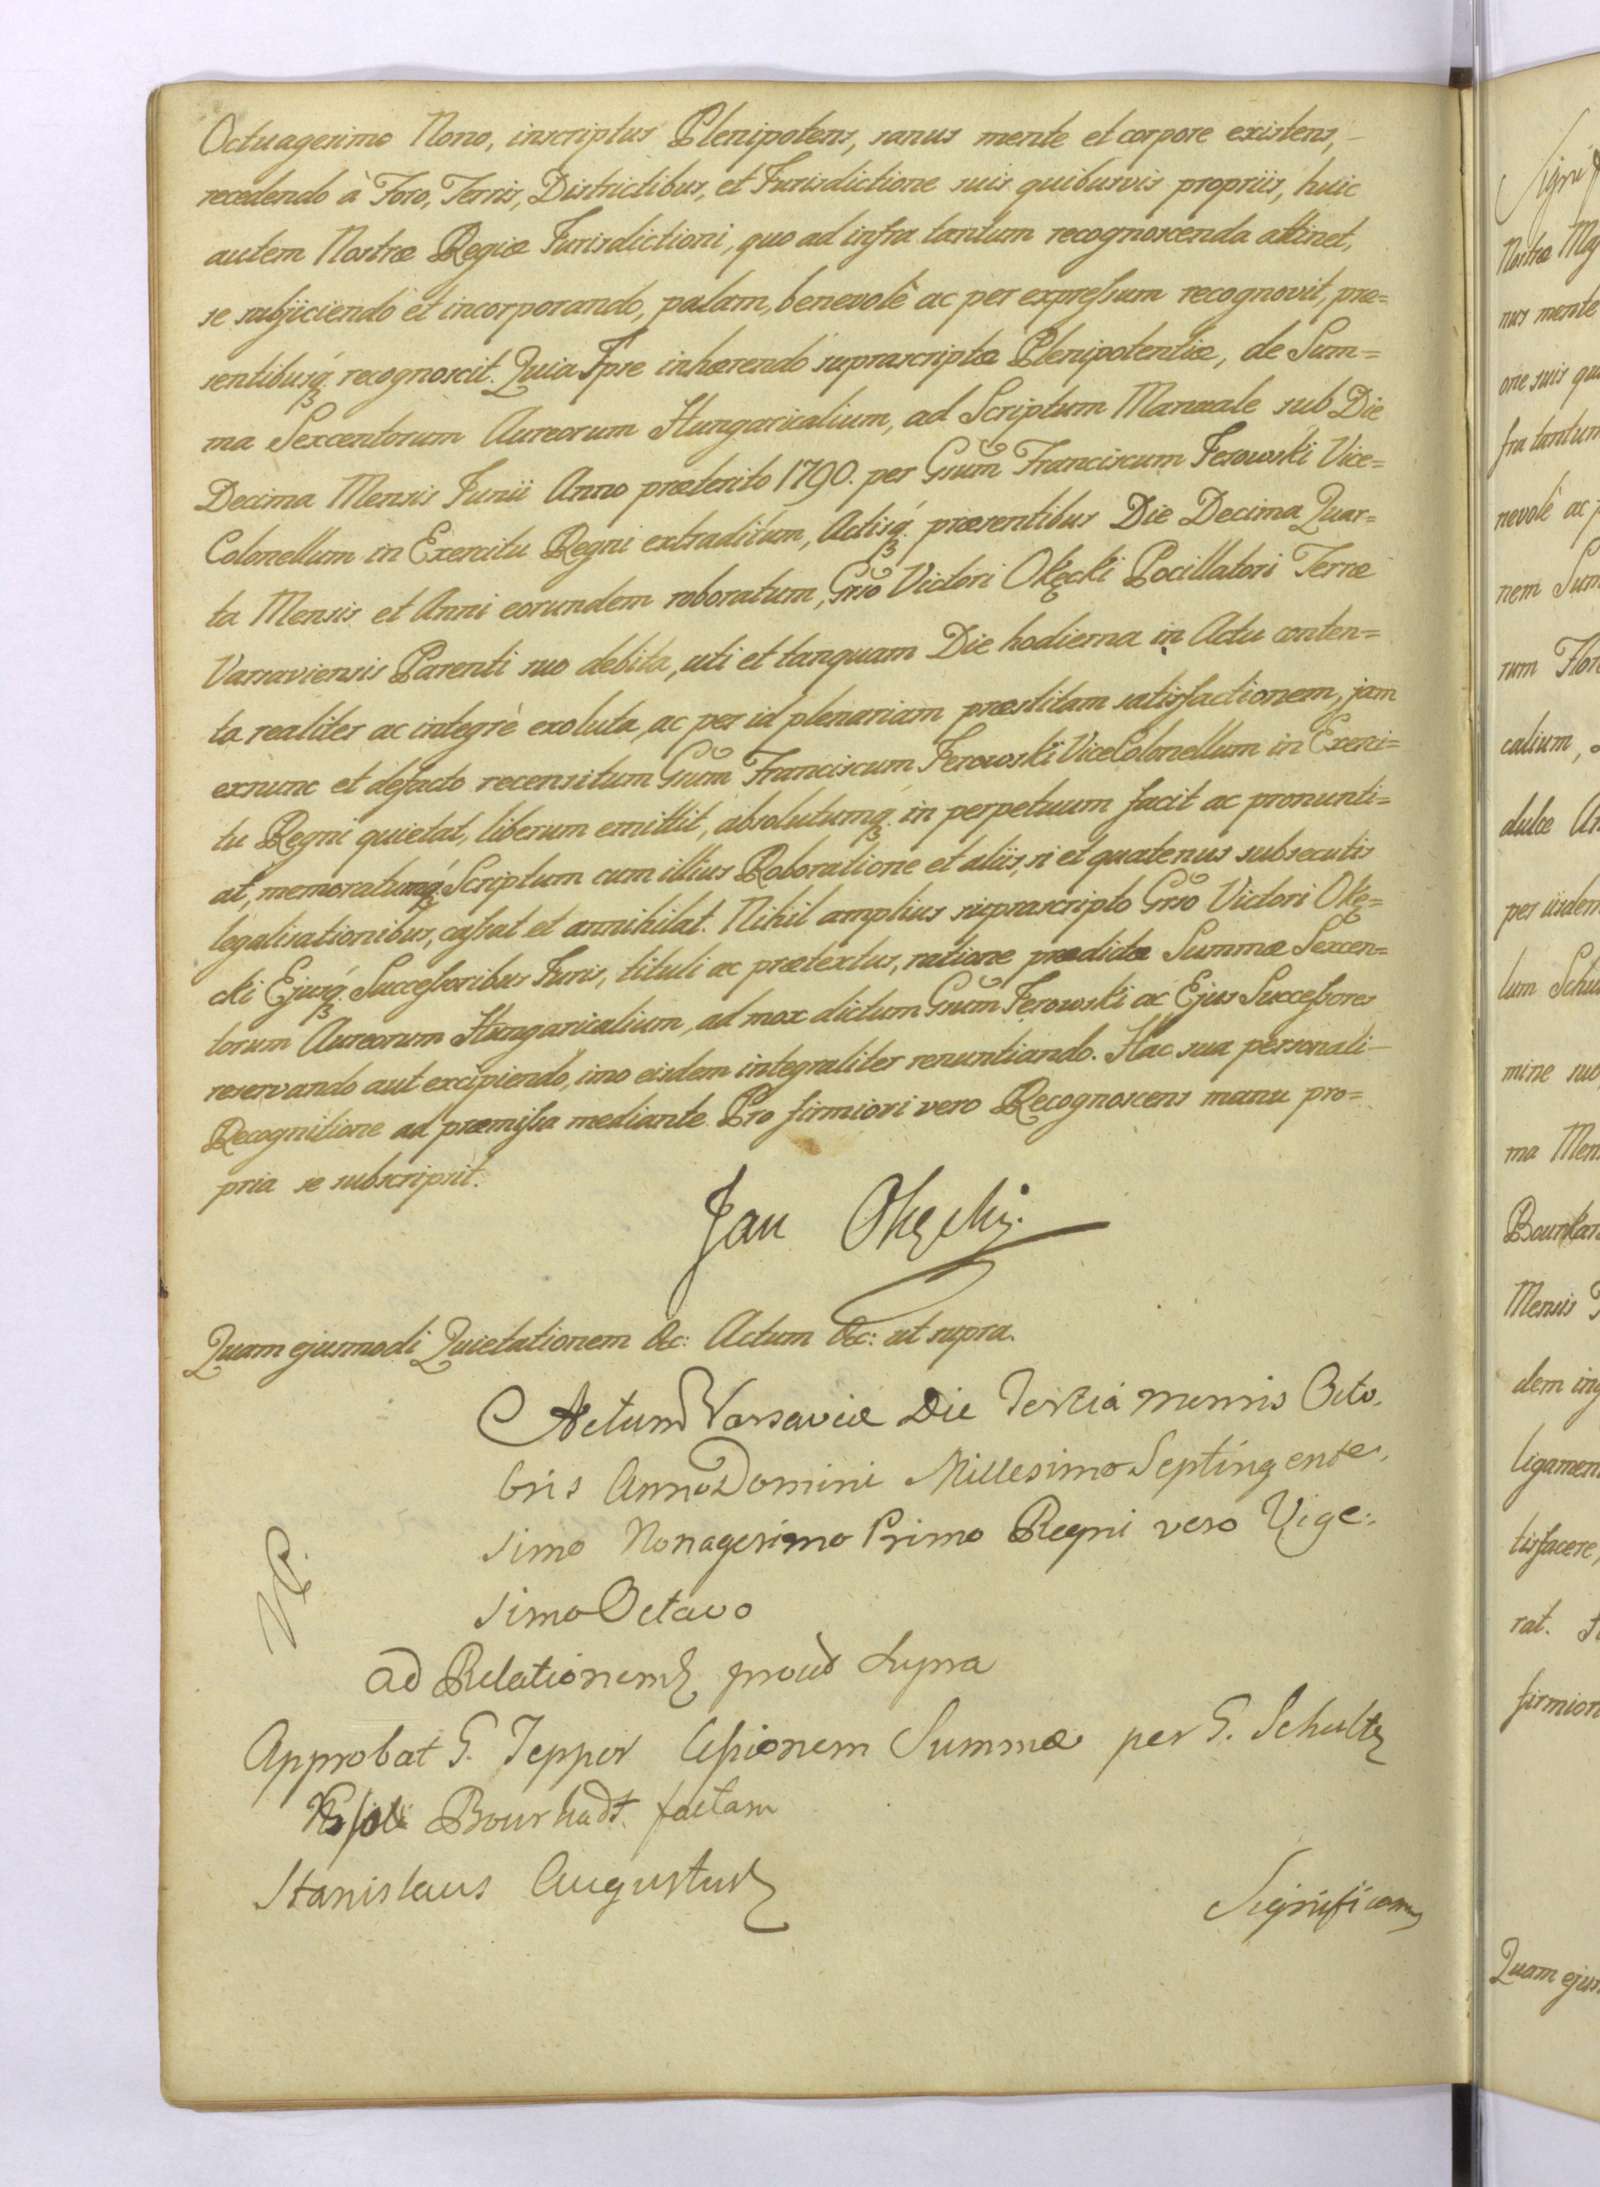 Octuagesimo Nono, inscriptus Plenipotens, sanus mente et corpore existens,
recedendo à Foro, Terris, Districtibus, et Jurisdictione suis quibusvis propriis, huic
autem Nostræ Regiæ Jurisdictioni, quo ad infra tantum recognoscenda attinet,
se subjiciendo et incorporando, palam, benevolè ac per expressum recognovit, præ=
sentibusq; recognoscit. Quia Ipse inhærendo suprascriptæ Plenipotentiæ, de Sum=
ma Sexcentorum Aureorum Hungaricalium, ad Scriptum Manuale sub Die
Decima Mensis Junii Anno præterito 1790. per Gsum Franciscum Jerowski Vice=
Colonellum in Exercitu Regni extraditum, Actisq; præsentibus Die Decima Quar=
ta Mensis et Anni eorundem roboratum, Gso Victori Okęcki Pocillatori Terræ
Varsaviensis Parenti suo debita, uti et tanquam Die hodierna in Actu conten=
ta realiter ac integrè exoluta, ac per id plenariam præstitam satisfactionem, jam
exnunc et defacto recensitum Gsum Franciscum Jerowski ViceColonellum in Exerci=
tu Regni quietat, liberum emittit, absolutumq; in perpetuum facit ac pronunti=
at, memoratumq; Scriptum cum illius Roboratione et aliis, si et quatenus subsecutis
legalisationibus, cassat et annihilat. Nihil amplius suprascripto Gso Victori Okę=
cki Ejusq; Successoribus Juris, tituli ac prætextus, ratione prædictæ Summæ Sexcen=
torum Aureorum Hungaricalium, ad mox dictum Gsum Jerowski ac Ejus Successores
reservando aut excipiendo, imo eisdem integraliter renuntiando. Hac sua personali
Recognitione ad præmissa mediante. Pro firmiori vero Recognoscens manu pro=
pria se subscripsit.
Jan Okęcki.
Quam ejusmodi Quietationem &c: Actum &c: ut supra.
Actum Varsaviæ Die Tertia Mensis Octo.
bris Anno Domini Millesimo Septingente.
simo Nonagesimo Primo Regni vero Vige:
simo Octavo
ad Relationem prout supra
Approbat G. Tepper Cessionem Summæ per G. Schultz
Bourkadt. factam
Stanislaus Augustus
Significam